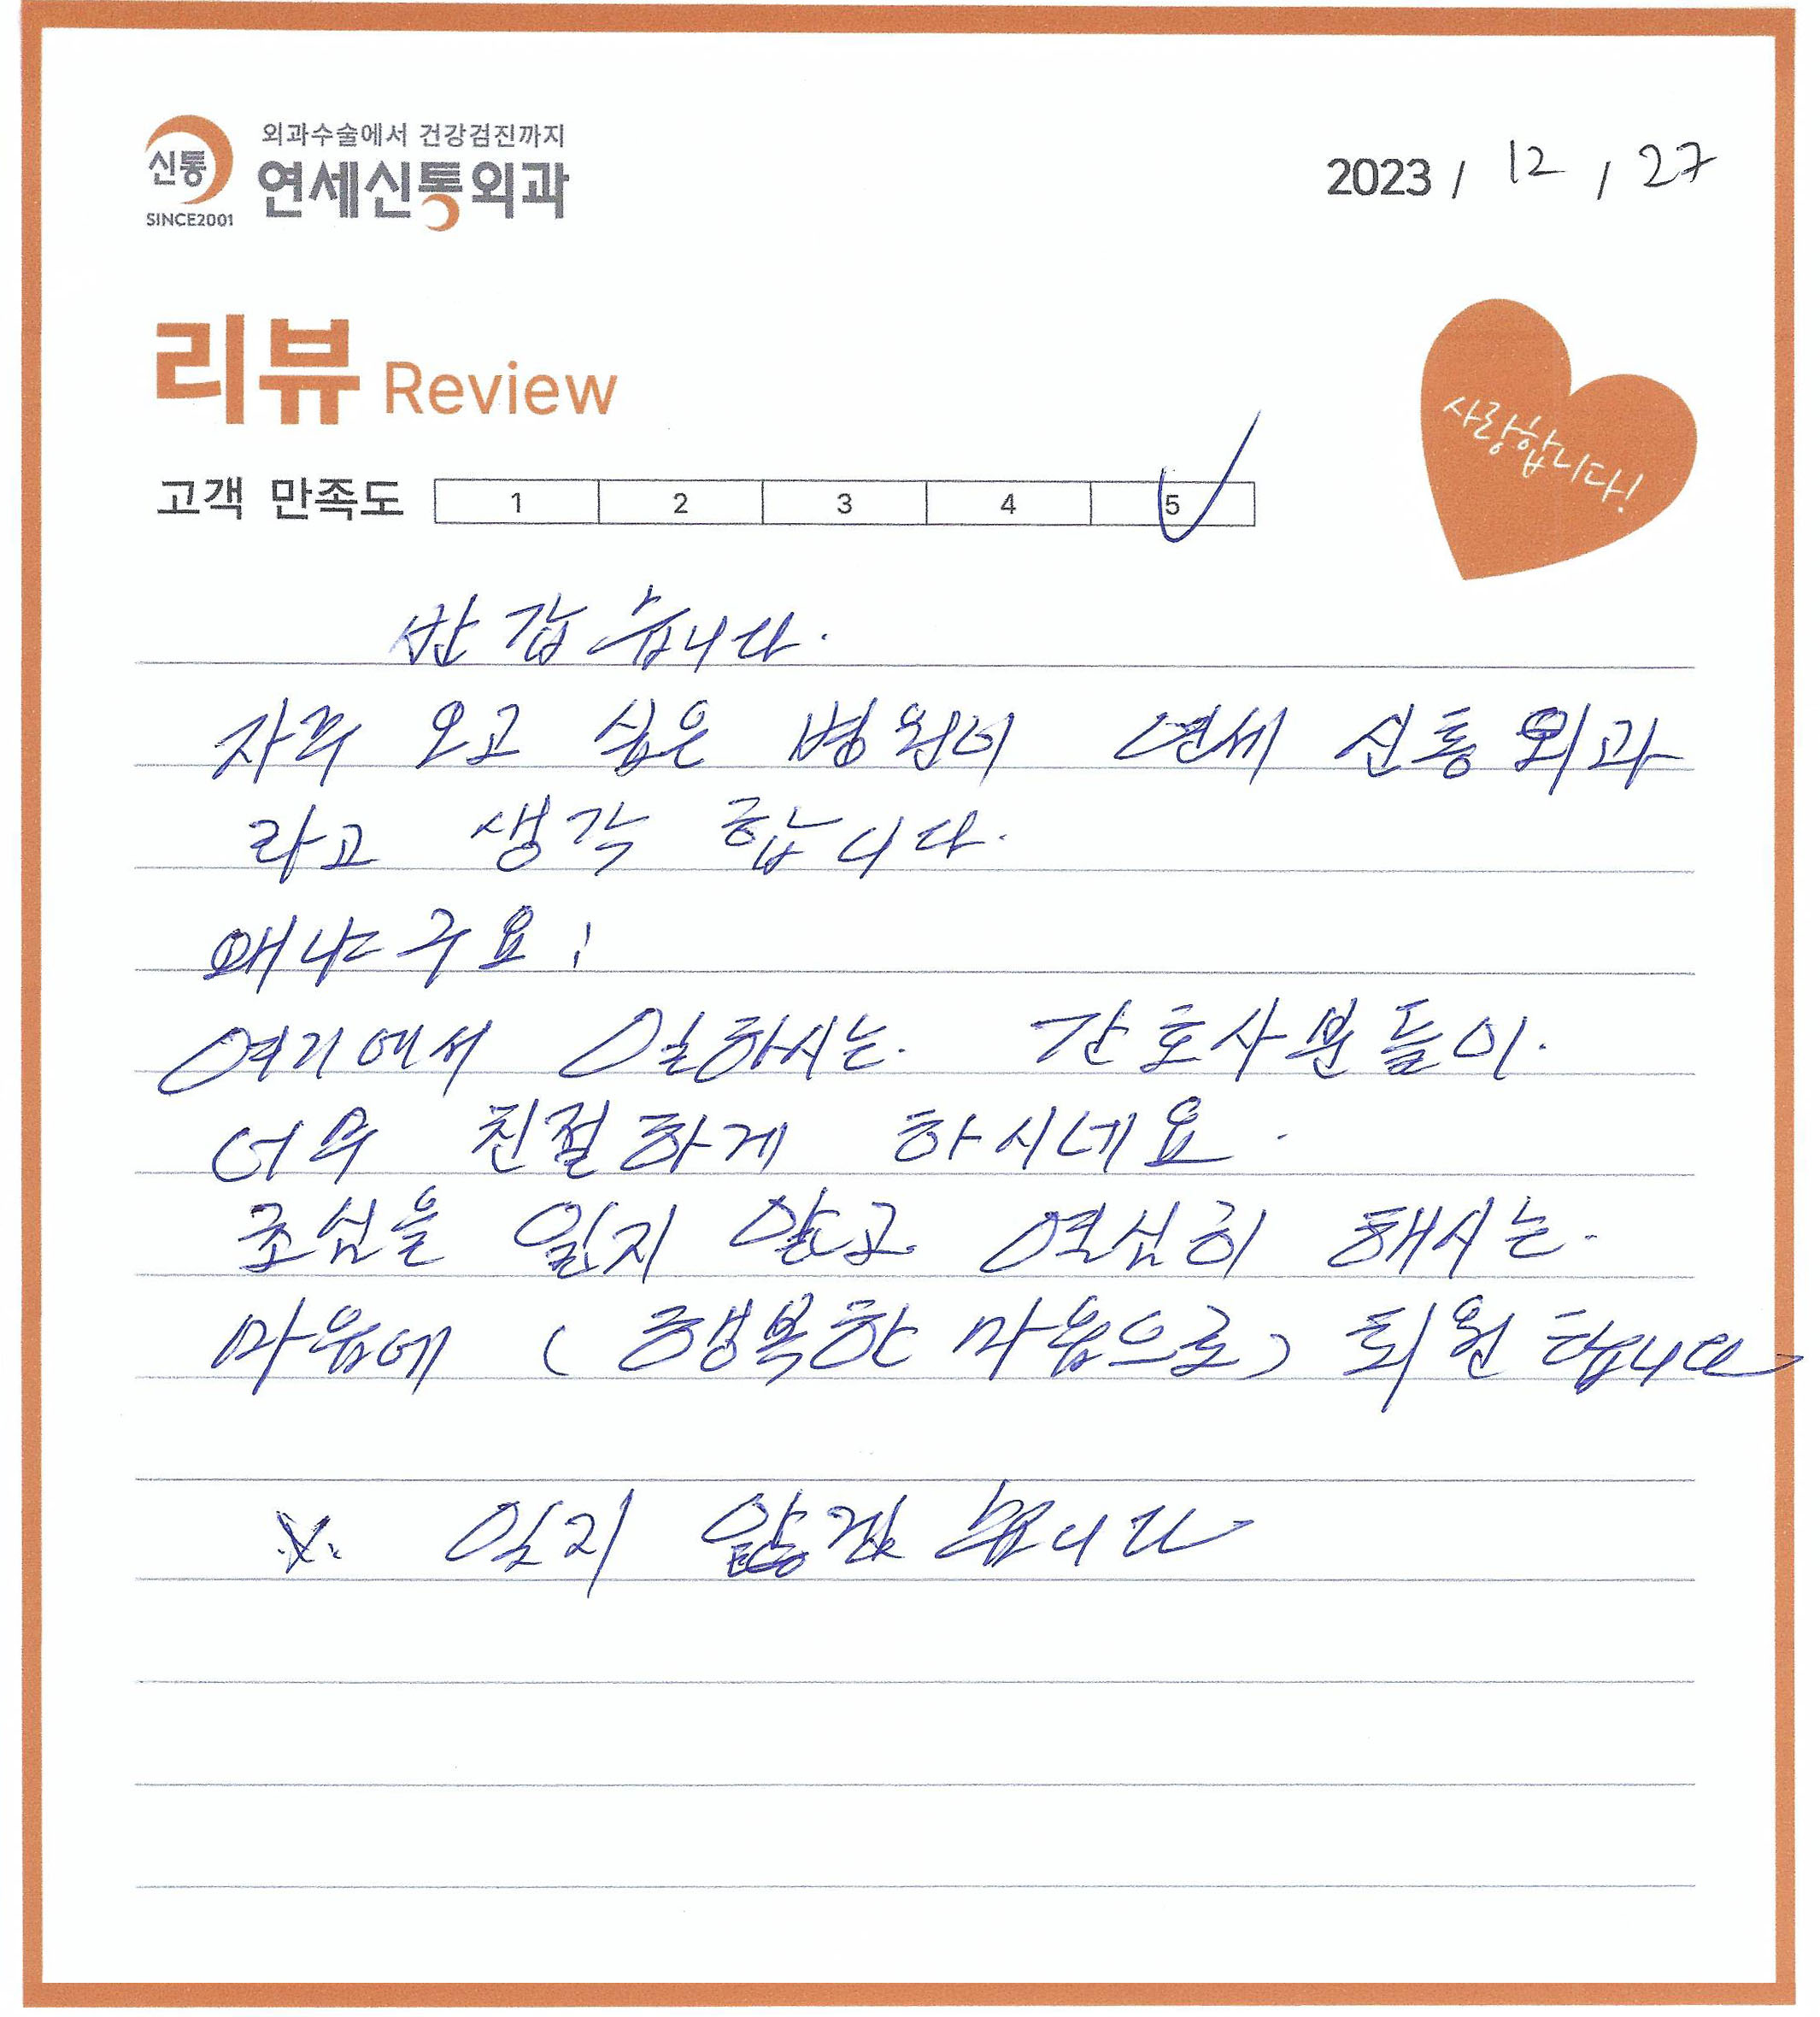 외과수술에서 건강검진까지
신통
SINCE2001
연세신통외과
2023 / 12 / 27
리뷰 Review
사랑합니다!
고객 만족도 1 2 3 4 5
반갑습니다.
자주 오고 싶은 병원이 연세 신통외과
라고 생각 합니다.
왜냐구요!
여기에서 일하시는. 간호사분들이.
너무 친절하게 하시네요.
초심을 잃지 않고. 열심히 해시는.
마음에 (행복한 마음으로) 퇴원 합니다
※ 잊지 않겠습니다